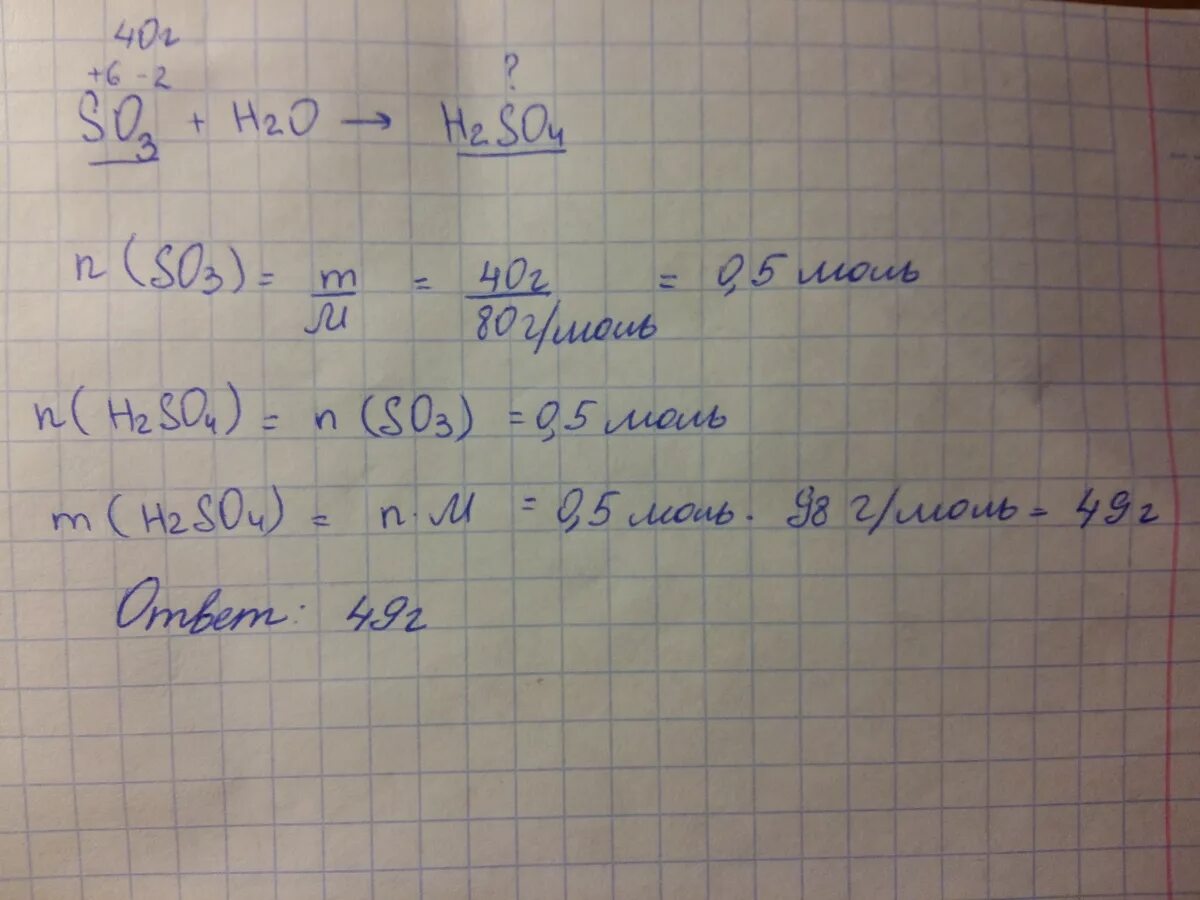 40г
+6 -2 ?
SO3 + H2O → H2SO4
n (SO3) = m/M = 40г/80г/моль = 0,5 моль
n( H2SO4) = n (SO3) = 0,5 моль
m ( H2SO4) = n · M = 0,5 моль · 98 г/моль = 49г
Ответ: 49г